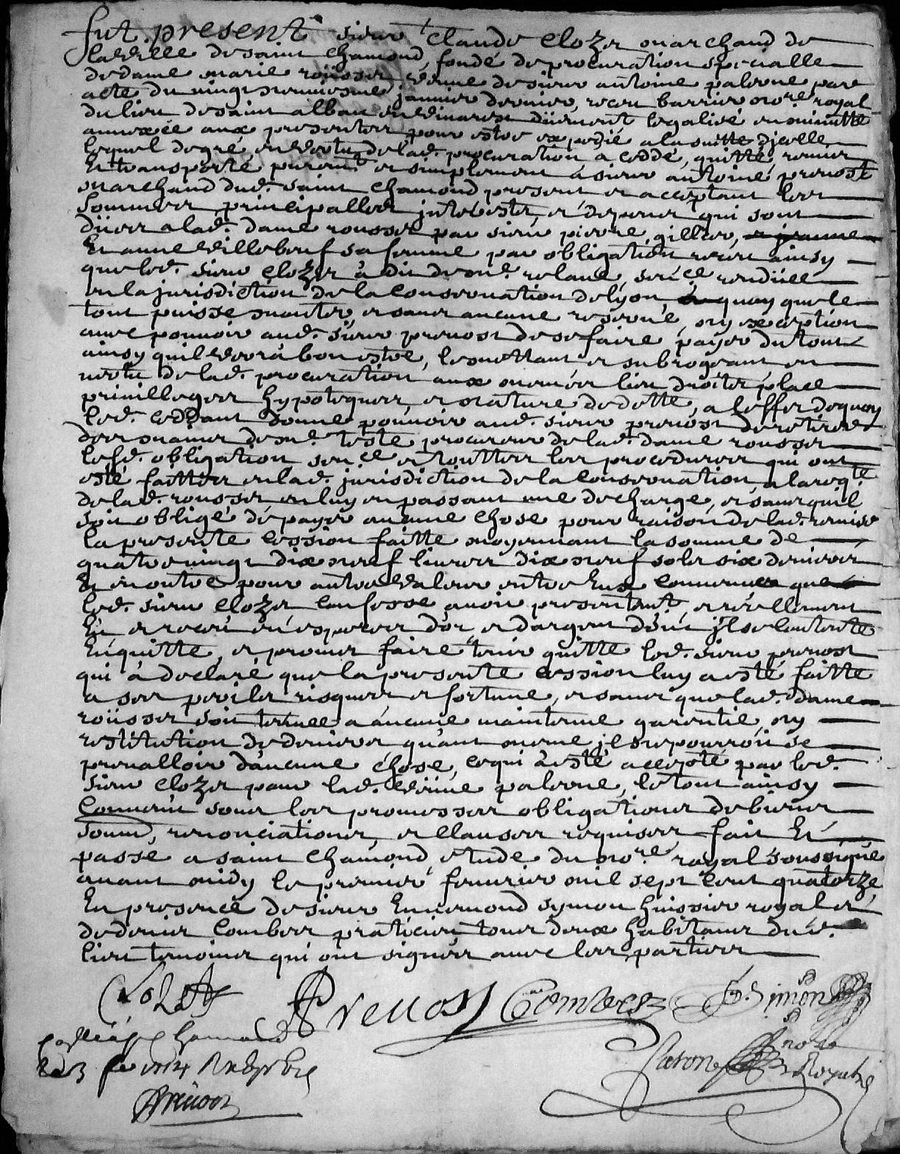 fut present sieur Claude Clozer marchand de
la ville de saint Chamond, fondé de procuration specialle
de dame marie rousser vefve de sieur antoine palerne par
acte du vingt janvier dernier, receu barrier no.re royal
du lieu de saint alban en vivarest düement legalisé en minutte
annexée aux presenter pour estre expedié a la suitte d'jcelle
lequel de gré en vertu de lad. procuration a cedé, quitté, remis
Et transporté purem.t et simplement à sieur antoine prevost
marchand dud. saint Chamond present et acceptant les
sommes principalles, jnterests, et depens qui sont
düer a lad. dame rousser par sieur pierre gillier,
Et anne villebeuf sa femme par obligation receu ainsy
que led. sieur clozer à dit de me. roland, sen.ce rendüee
en la jurisdiction de la Conservation de lyon, a quoy que le
tout puisse monter, et sans aucune reserve, ny exception
avec pouvoir aud. sieur prevost de se faire payer du tout
ainsy quil verra bon estre, le mettant et subrogeant en
vertu de lad. procuration aux mesmes lieu droits place
privilleges hypoteques, et nature de dette, a l'effet de quoy
led. ceddant donne pouvoir aud. sieur prevost de retirer
des mains de me. teste procureur de lad. dame rousser
lesd. obligation sen.ce et touttes les procedures qui ont
esté faittes en lad. jurisdiction de la Conservation a la req.te
de lad. rousser en luy en passant une decharge, et sans quil
soit obligé de payer aucune chose pour raison de lad. remise
la presente cession faitte moyennant la somme de
quatre vingt dix neuf livres dix neuf sols six deniers
que
led. sieur clozer confesse avoir presentem.t et reellement
Eu et receu en especes d'or et d'argent dont jl se contente
En quitte, et promet faire tenir quitte led. sieur prevost
qui à declaré que la presente cession luy a esté faitte
a ses perils risques et fortune, et sans que lad. dame
rousser soit tenuee a aucune maintenue garentie, ny
restitution de deniers quant mesme jl ne pourroit se
prevalloir d'aucune chose, ce qui à esté accepté par led.
sieur clozer pour lad. vefve palerne, le tout ainsy
Convenu sous les promesses obligations de biens
soum., renonciations et clauses requises fait Et
passé a saint Chamond etude du no.re royal soussigné
avant midy le premier fevvrier mil sept cent quatorze,
En presence de sieur Ennemond symon huissier royal et
de denis Combes praticien tous deux habitans dud.
lieu temoins qui ont signer avec les parties
Clozer Prevost Combes Simon
no.re
Royal
Chamond
Prevost